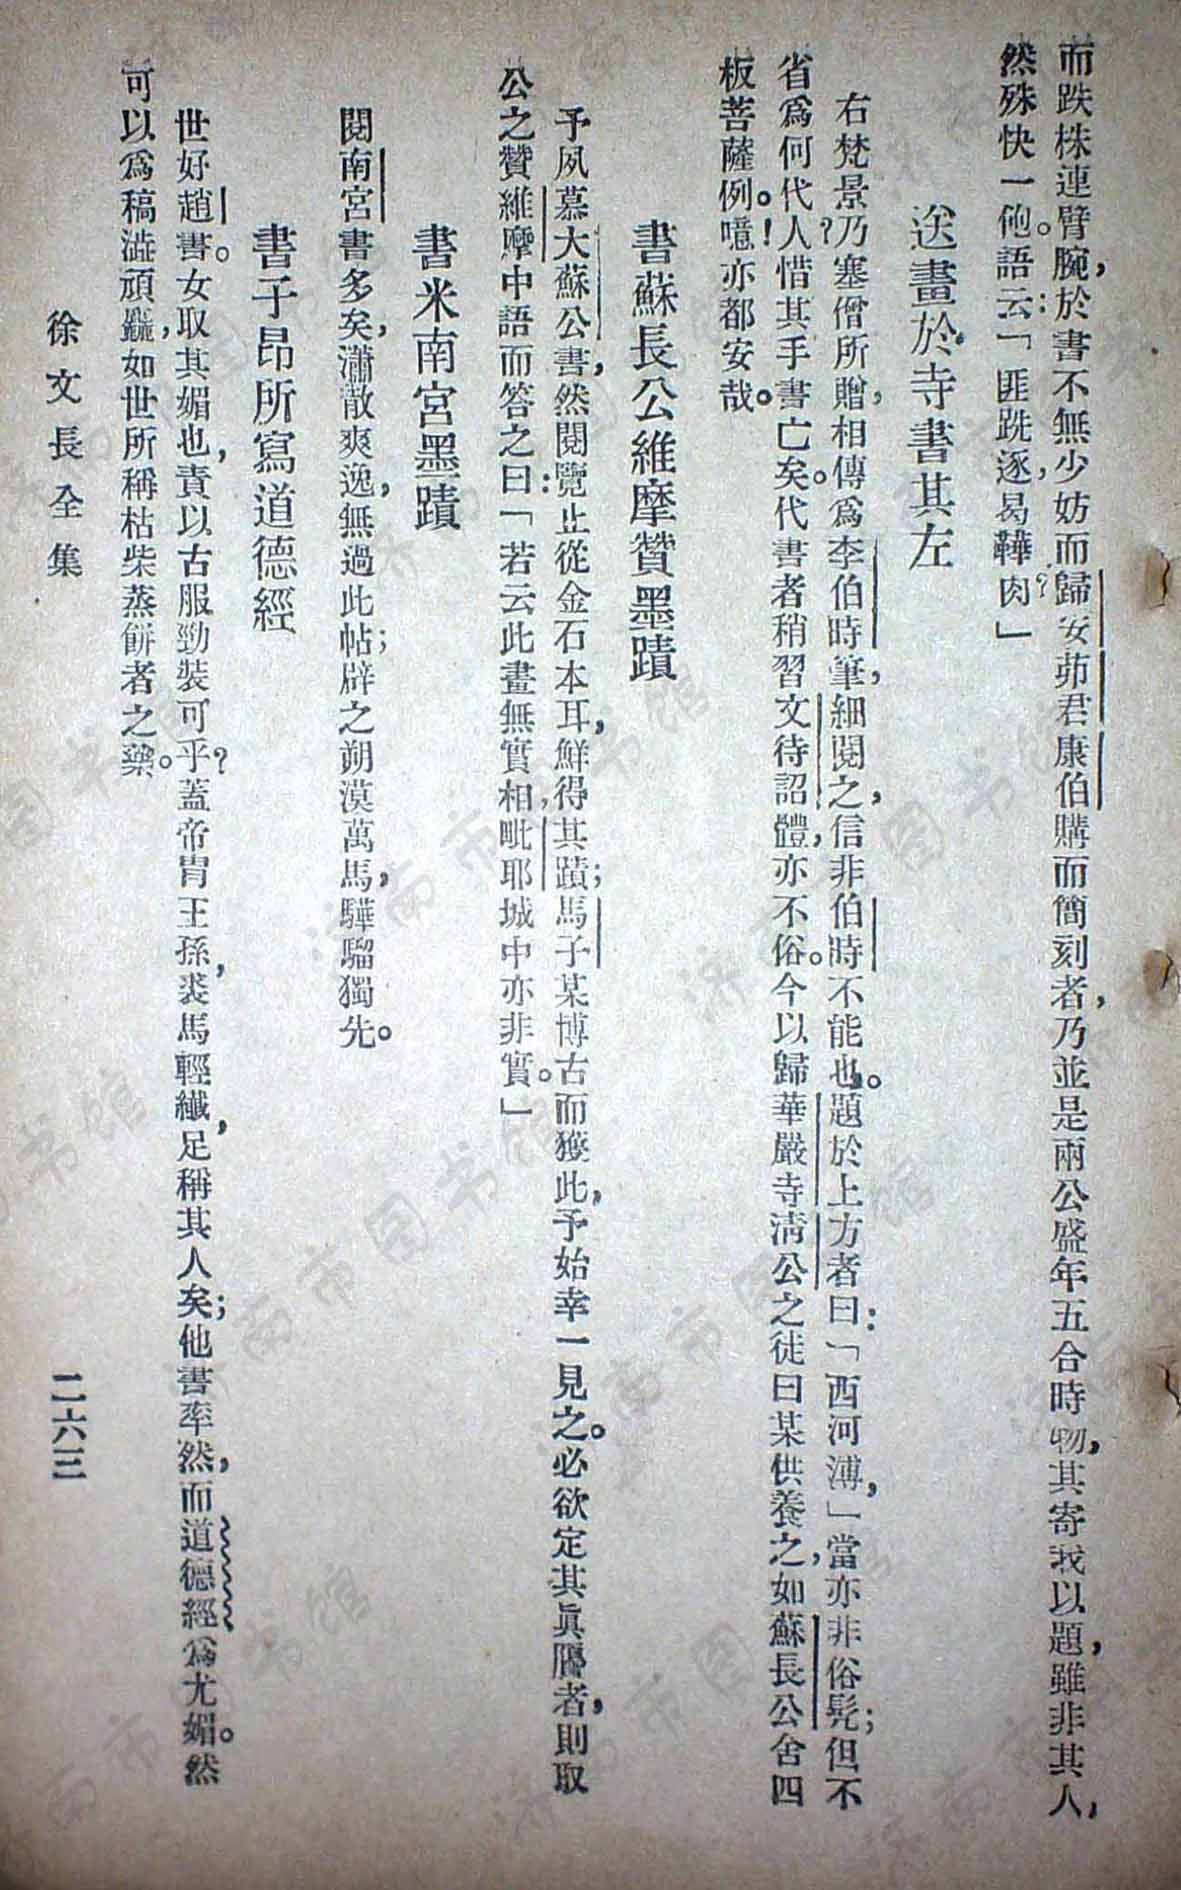 而跌株連臂腕，於書不無少妨而歸安茆君康伯購而簡刻者，乃並是兩公盛年五合時物，其寄我以題，雖非其人，
然殊快一。他語云：「匪跣逐，曷鞾肉？」
送畫於寺書其左
右梵景乃塞僧所贈，相傳爲李伯時筆，細閱之，信非伯時不能也。題於上方者曰：「西河溥，」當亦非俗髡；但不
省爲何代人？惜其手書亡矣。代書者稍習文待詔體，亦不俗。今以歸華嚴寺淸公之徒曰某供養之，如蘇長公舍四
板菩薩例。噫！亦都安哉。
書蘇長公維摩贊墨蹟
予夙慕大蘇公書，然閱覽止從金石本耳，鮮得其蹟；馬子某博古而獲此，予始幸一見之。必欲定其眞贋者，則取
公之贊維摩中語而答之曰：「若云此畫無實相，毗耶城中亦非實。」
書米南宮墨蹟
閱南宮書多矣，瀟散爽逸，無過此帖；辟之朔漠萬馬，驊騮獨先。
書子昂所寫道德經
世好趙書。女取其媚也，責以古服勁裝可乎？蓋帝胄王孫，裘馬輕纖，足稱其人矣；他書率然，而道德經爲尤媚。然
可以爲稿澁頑，如世所稱枯柴蒸餅者之藥。
徐文長全集
二六三